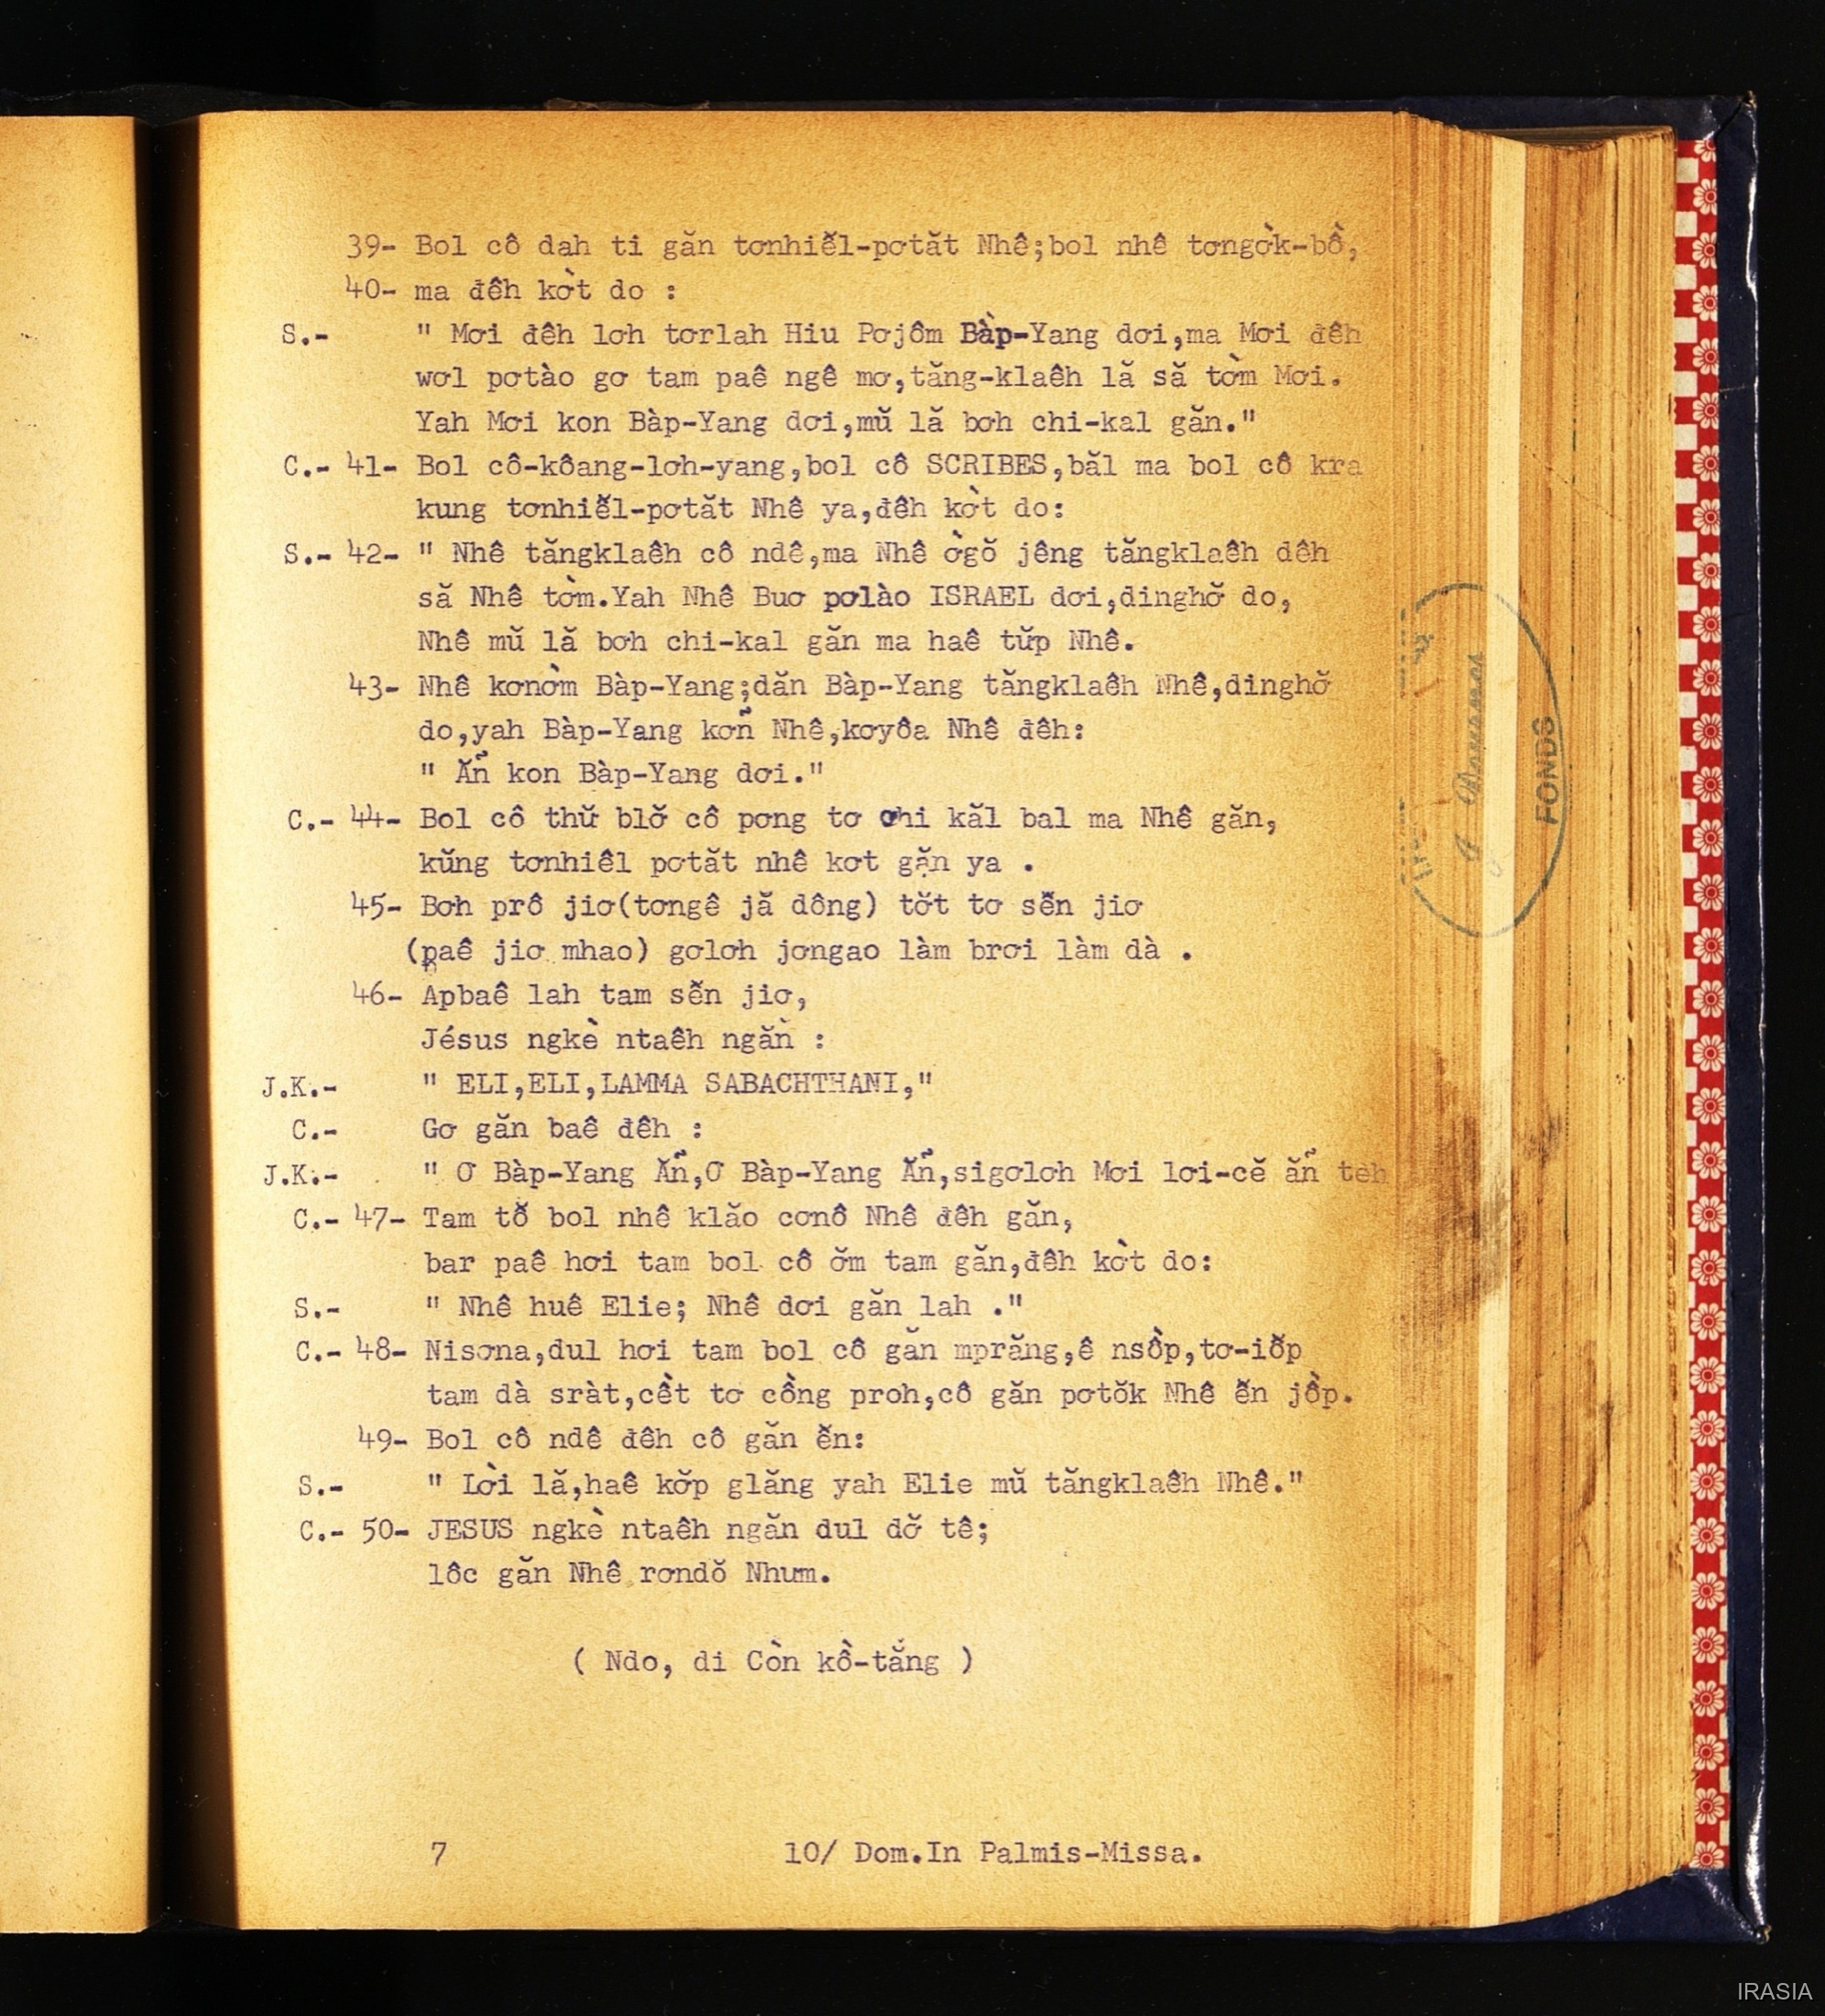 39- Bol cô dah ti găn tơnhiễl-pơtăt Nhê;bol nhê tơngờk-bồ,
40- ma đêh kờt do :
S.- " Mơi đêh lơh tơrlah Hiu Pơjôm Bàp-Yang dơi,ma Mơi đêh
wơl pơtào gơ tam paê ngê mơ,tăng-klaêh lă să tờm Mơi.
Yah Mơi kon Bàp-Yang dơi,mŭ lă bơh chi-kal găn."
C.- 41- Bol cô-kôang-lơh-yang,bol cô SCRIBES,băl ma bol cô kra
kung tơnhiễl-pơtăt Nhê ya,đêh kờt do:
S.- 42- " Nhê tăngklaêh cô ndê,ma Nhê ờgŏ jêng tăngklaêh đêh
să Nhê tờm.Yah Nhê Buơ pơlào ISRAEL dơi,dinghơ̆ do,
Nhê mŭ lă bơh chi-kal găn ma haê tŭp Nhê.
43- Nhê kơnờm Bàp-Yang;dăn Bàp-Yang tăngklaêh Nhê,dinghơ̆
do,yah Bàp-Yang kơñ Nhê,kơyôa Nhê đêh:
" Ăñ kon Bàp-Yang dơi."
C.- 44- Bol cô thŭ blơ̆ cô pơng tơ chi kăl bal ma Nhê găn,
kŭng tơnhiêl pơtăt nhê kơt găn ya .
45- Bơh prô jiơ(tơngê jă dông) tơ̆t tơ sễn jiơ
(paê jiơ mhao) gơlơh jơngao làm brơi làm dà .
46- Apbaê lah tam sễn jiơ,
Jésus ngkè ntaêh ngăn :
J.K.- " ELI,ELI,LAMMA SABACHTHANI,"
C.- Gơ găn baê đêh :
J.K.- " Ơ Bàp-Yang Ăñ,Ơ Bàp-Yang Ăñ,sigơlơh Mơi lơi-cĕ ăñ
C.- 47- Tam tơ̆ bol nhê klăo cơnô Nhê đêh găn,
bar paê hơi tam bol cô ơ̆m tam găn,đêh kờt do:
S.- " Nhê huê Elie; Nhê dơi găn lah ."
C.- 48- Nisơna,dul hơi tam bol cô găn mprăng,ê nsồp,tơ-iỗp
tam dà sràt,cềt tơ cồng proh,cô găn pơtŏk Nhê ễn jồp.
49- Bol cô ndê đêh cô găn ễn:
S.- " Lời lă,haê kơ̆p glăng yah Elie mŭ tăngklaêh Nhê."
C.- 50- JESUS ngkè ntaêh ngăn dul dơ̆ tê;
lôc găn Nhê rơndŏ Nhum.
( Ndo, di Còn kồ-tăng )
7 10/ Dom.In Palmis-Missa.
FONDS
IRASIA